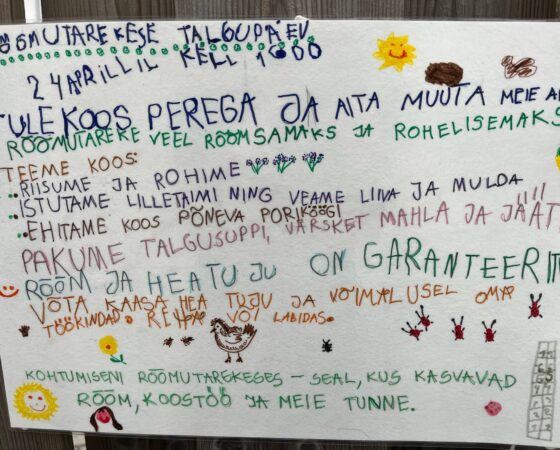 RÕÕMUTAREKESE TALGUPÄEV
24 APRILLIL KELL 1600
TULE KOOS PEREGA JA AITA MUUTA MEIE
RÕÕMUTAREKE VEEL RÕÕMSAMAKS JA ROHELISEMAKS
TEEME KOOS:
RIISUME JA ROHIME
ISTUTAME LILLETAIMI NING VEAME LIIVA JA MULDA
EHITAME KOOS PÕNEVA PORIKÖÖGI
PAKUME TALGUSUPPI, VÄRSKET MAHLA JA JÄÄT
RÕÕM JA HEA TUJU ON GARANTEERIT
VÕTA KAASA HEA TUJU JA VÕIMALUSEL OMA
TÖÖKINDAD, REHA VÕI LABIDAS.
KOHTUMISENI RÕÕMUTAREKESES – SEAL, KUS KASVAVAD
RÕÕM, KOOSTÖÖ JA MEIE TUNNE.